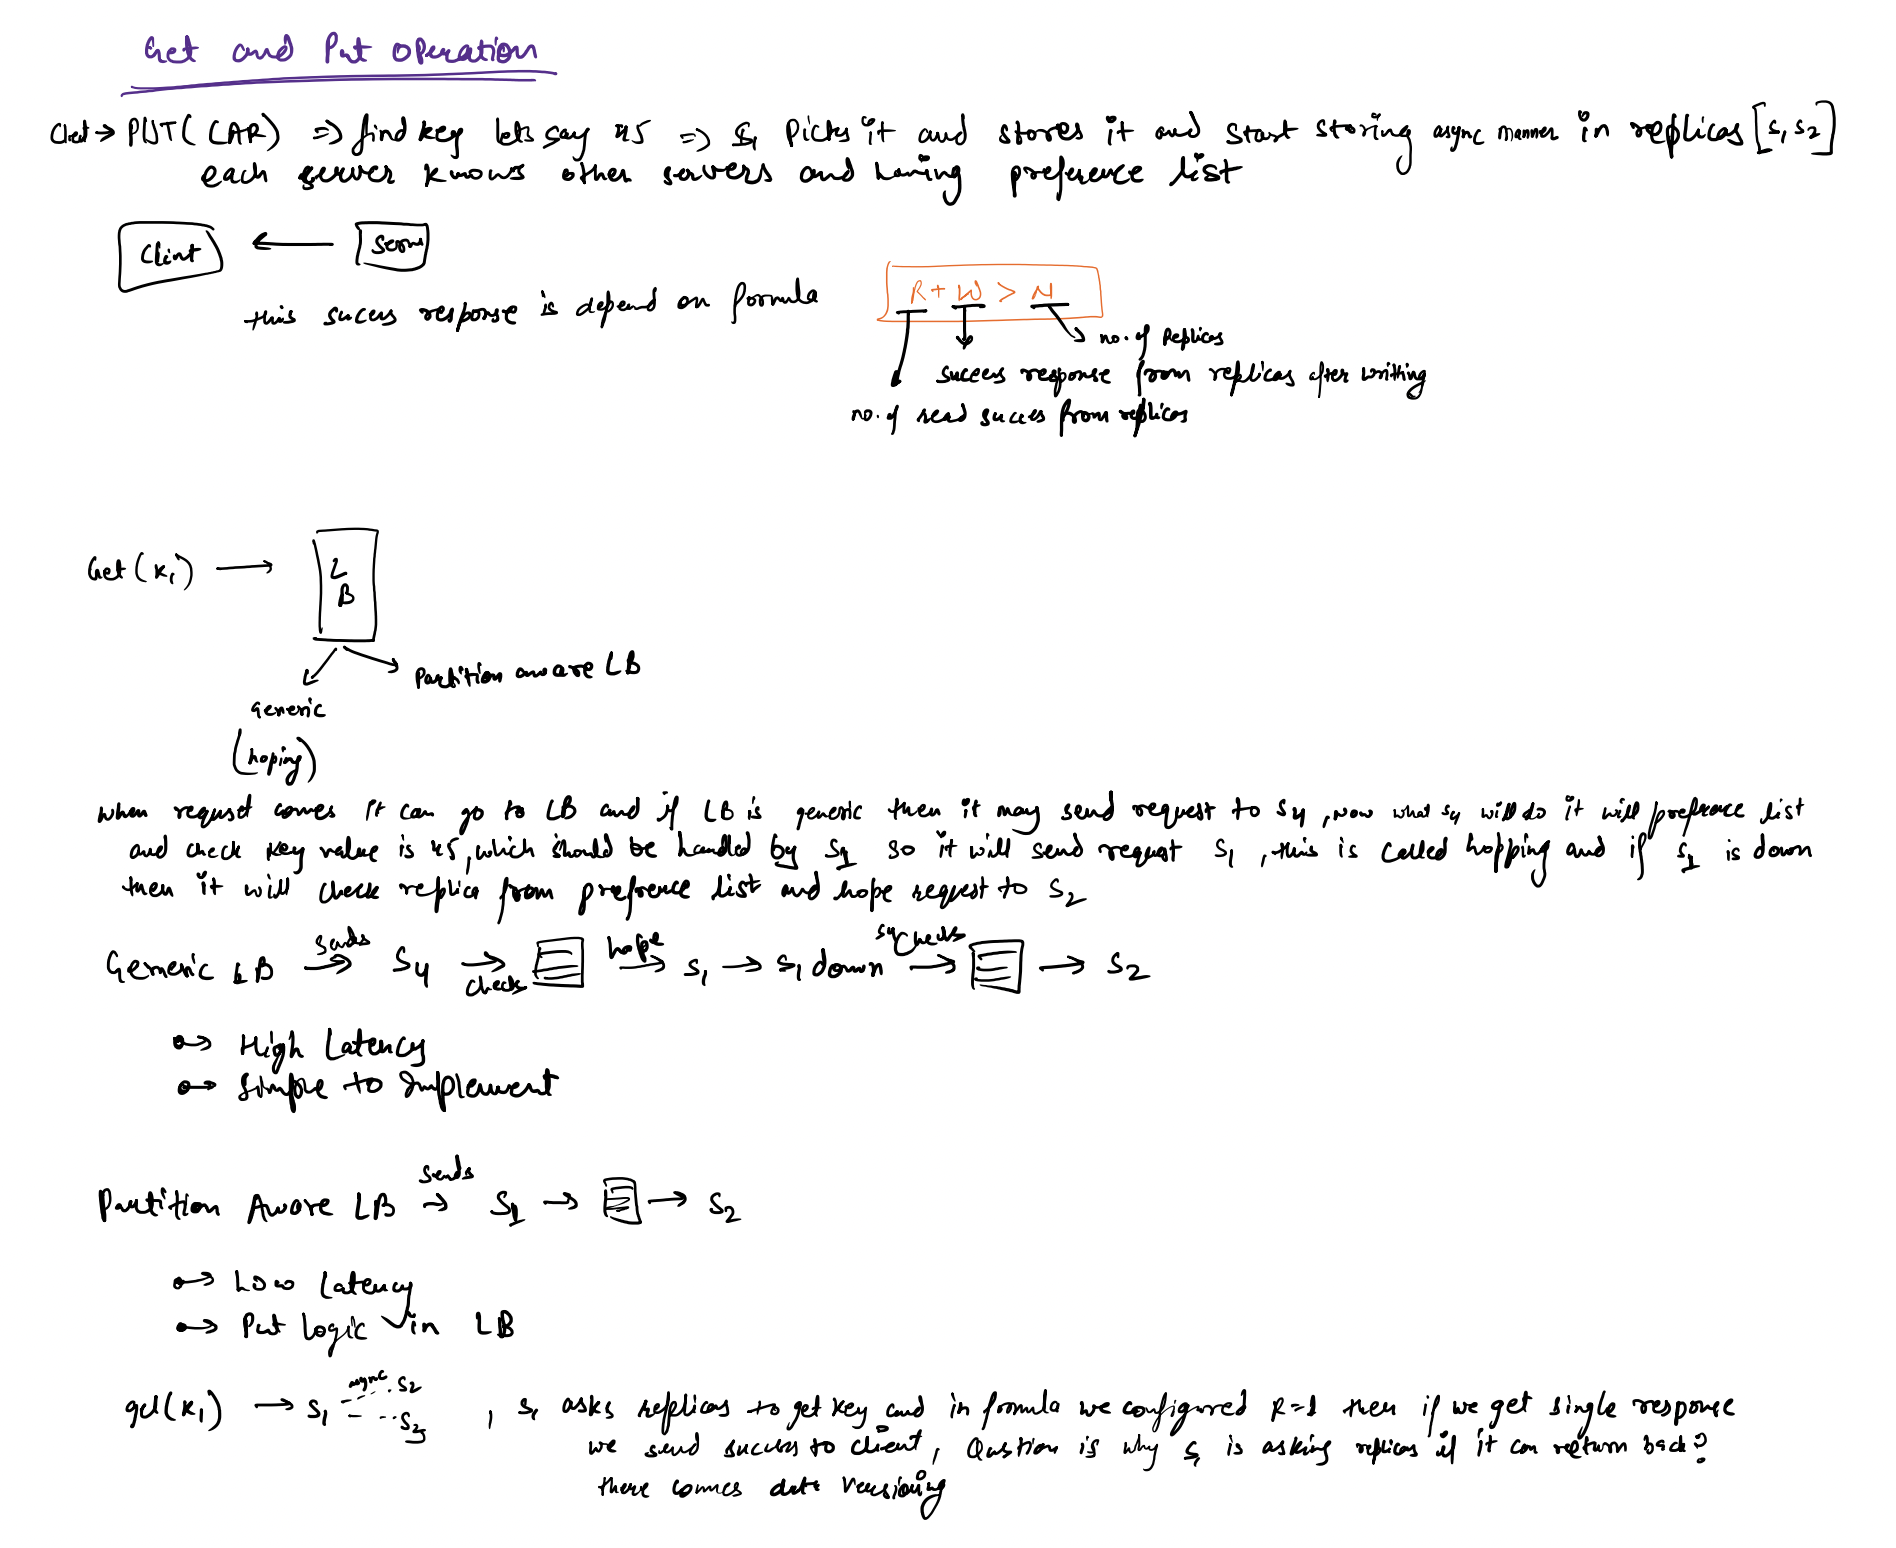 Get and Put operation
Client → PUT(CAR) => find key lets say 45 => S1 Picks it and stores it and start storing async manner in replicas [S1 S2]
each server knows other servers and having preference list
Clint ←
this succes response is depend on formula
R + W > N
no. of Replicas
success response from replicas after writting
no. of read succes from replicas
Get (K1) →
L
B
Partition aware LB
generic
(hoping)
when request comes it can go to LB and if LB is generic then it may send request to S4, now what S4 will do it will prefrence list
and check key value is 45, which should be handled by S1 so it will send request S1, this is called hopping and if S1 is down
then it will check replica from prefrence list and hope request to S2
Generic LB sends → S4 → checks hope → S1 → S1 down S4 checks → → S2
High Latency
Simple to Implement
Partition Aware LB sends → S1 → → S2
Low latency
Put logic in LB
get(K1) → S1 async S2
S3
, S1 asks replicas to get key and in formula we configured R=1 then if we get single response
we send success to client, Qustion is why S1 is asking replicas if it can return back?
there comes data versioning